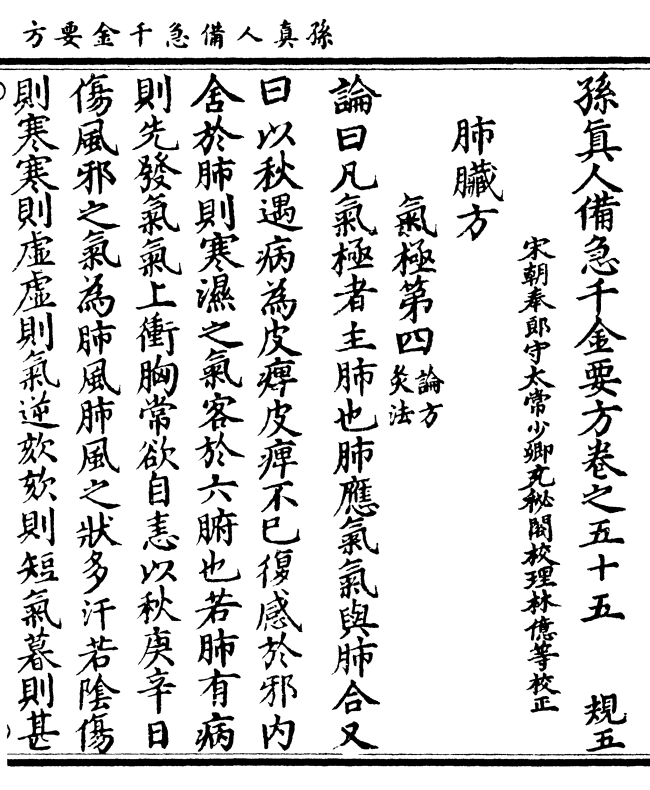 孫真人備急千金要方
孫真人備急千金要方卷之五十五　規五
宋朝奉郎守太常少卿充秘閣校理林億等校正
肺臟方
氣極第四　論方　灸法
論曰凡氣極者主肺也肺應氣氣與肺合又
曰以秋遇病為皮痺皮痺不已復感於邪內
舍於肺則寒濕之氣客於六腑也若肺有病
則先發氣氣上衝胸常欲自恚以秋庚辛日
傷風邪之氣為肺風肺風之狀多汗若陰傷
則寒寒則虛虛則氣逆欬欬則短氣暮則甚